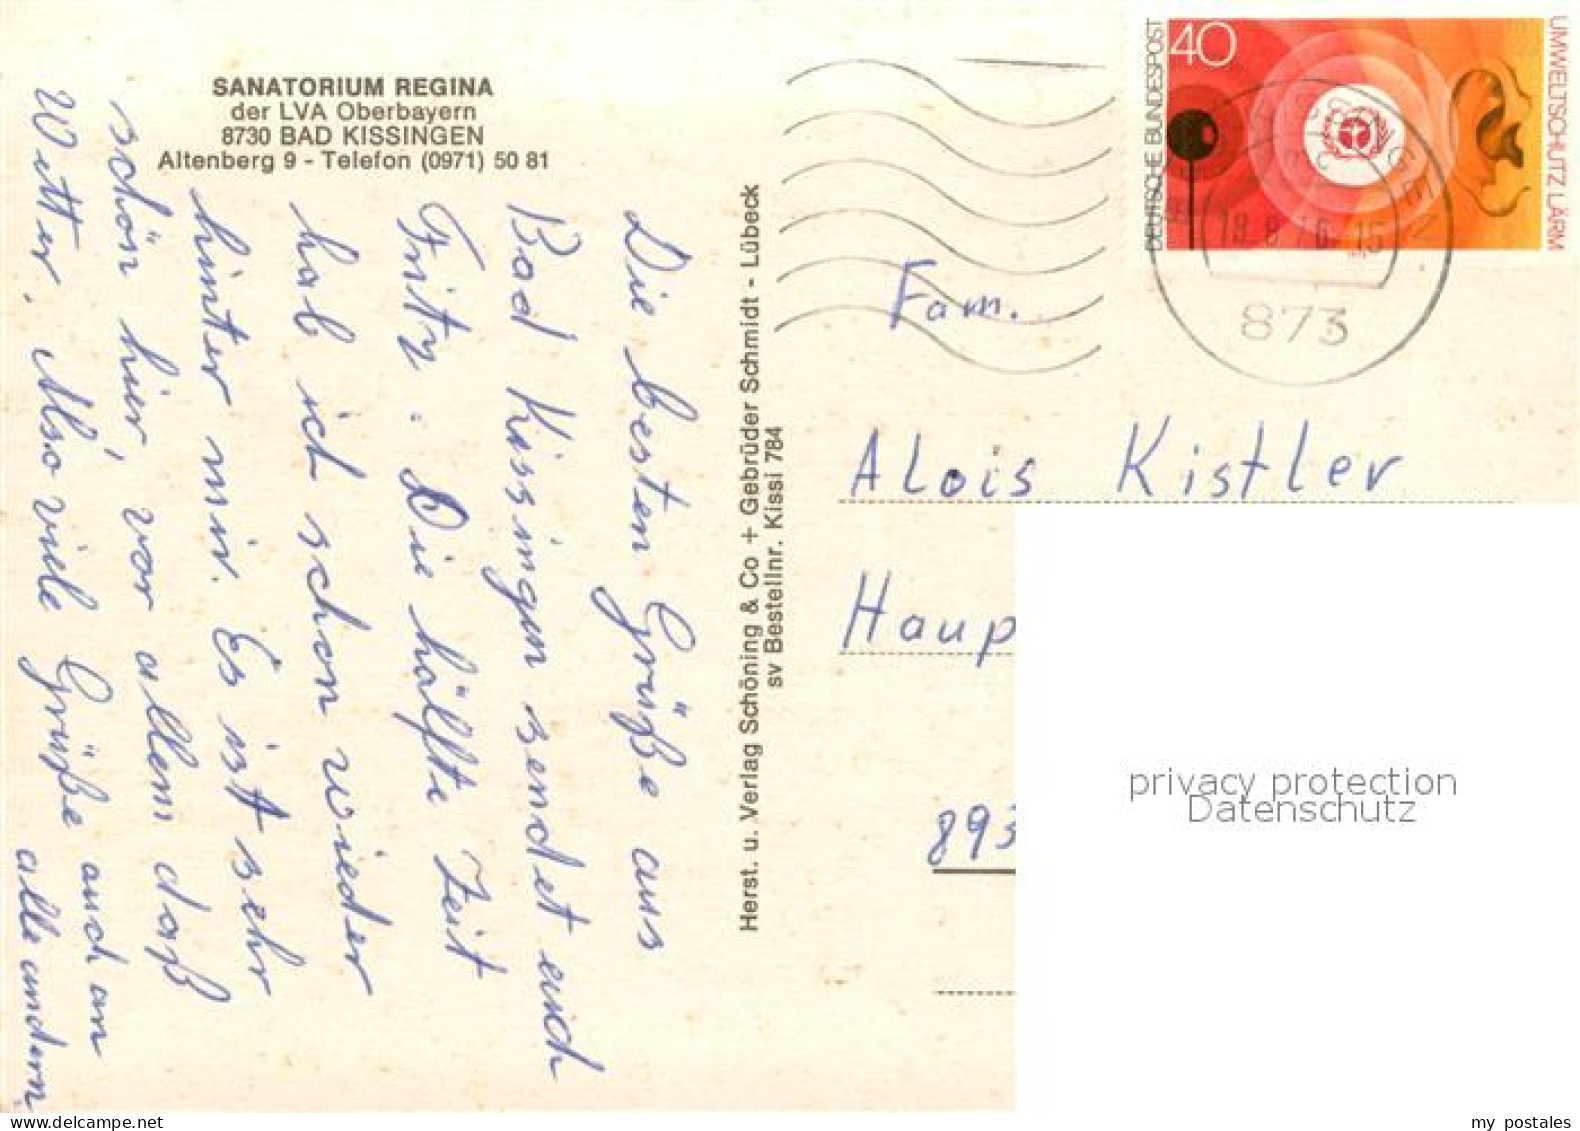 SANATORIUM REGINA
der LVA Oberbayern
8730 BAD KISSINGEN
Altenberg 9 - Telefon (0971) 50 81
Die besten Grüße aus
Bad Kissingen sendet euch
Fritz. Die hälfte Zeit
hab ich schon wieder
hinter mir. Es ist sehr
schön hier, vor allem daß
Wetter. Also viele Grüße auch an
alle andern
Herst. u. Verlag Schöning & Co + Gebrüder Schmidt - Lübeck
sv Bestellnr. Kissi 784
DEUTSCHE BUNDESPOST
40
UMWELTSCHUTZ LÄRM
19.8.76.15
873
Fam.
Alois Kistler
Haup
893
privacy protection
Datenschutz
my postales